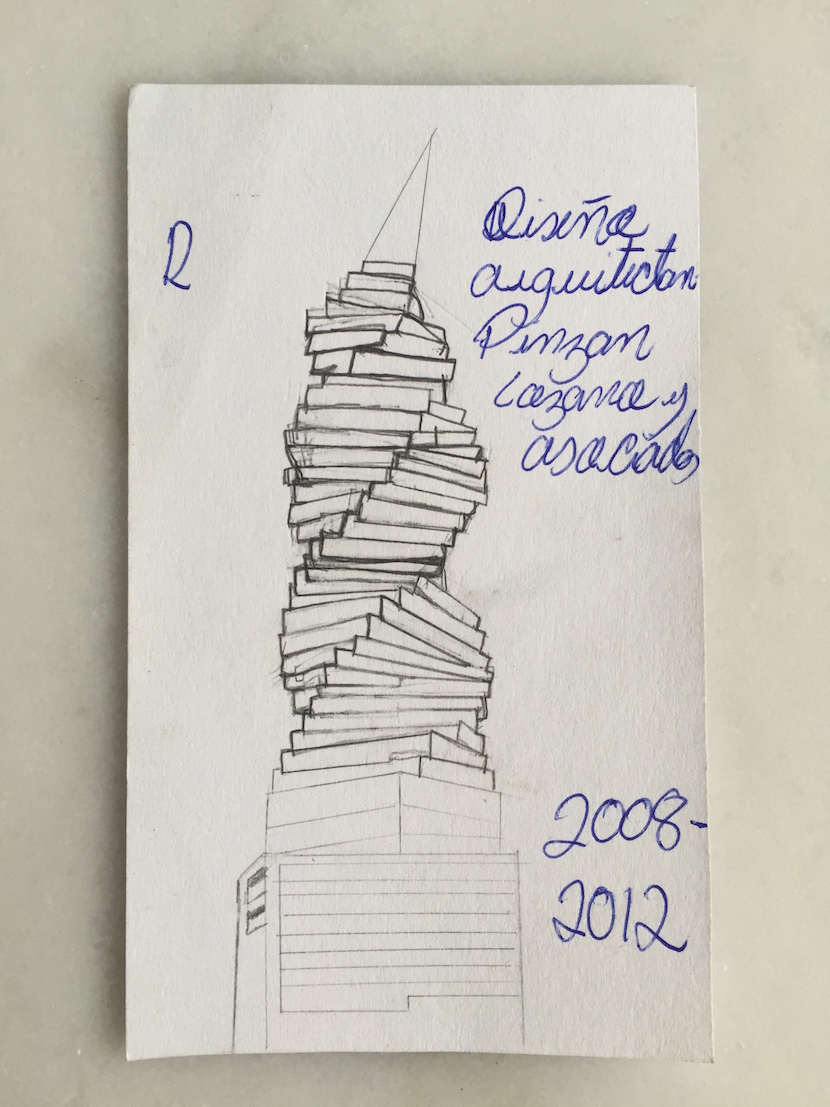 R
Diseño
arquitectan
Pinzan
Lozano y
asocados
2008-
2012